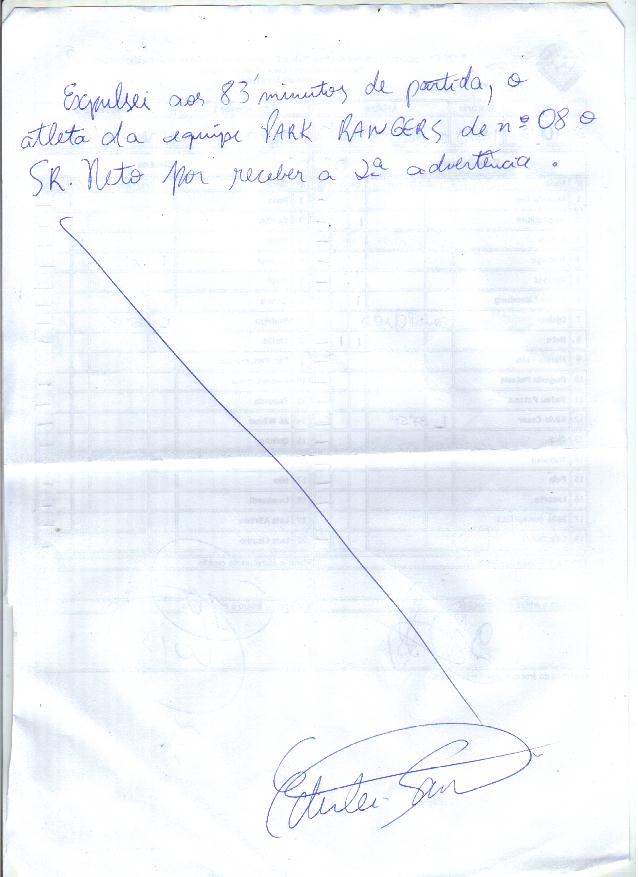 Expulsei aos 83' minutos de partida, o
atleta da equipe PARK RANGERS de nº 08 o
SR. Neto por receber a 2ª advertência.